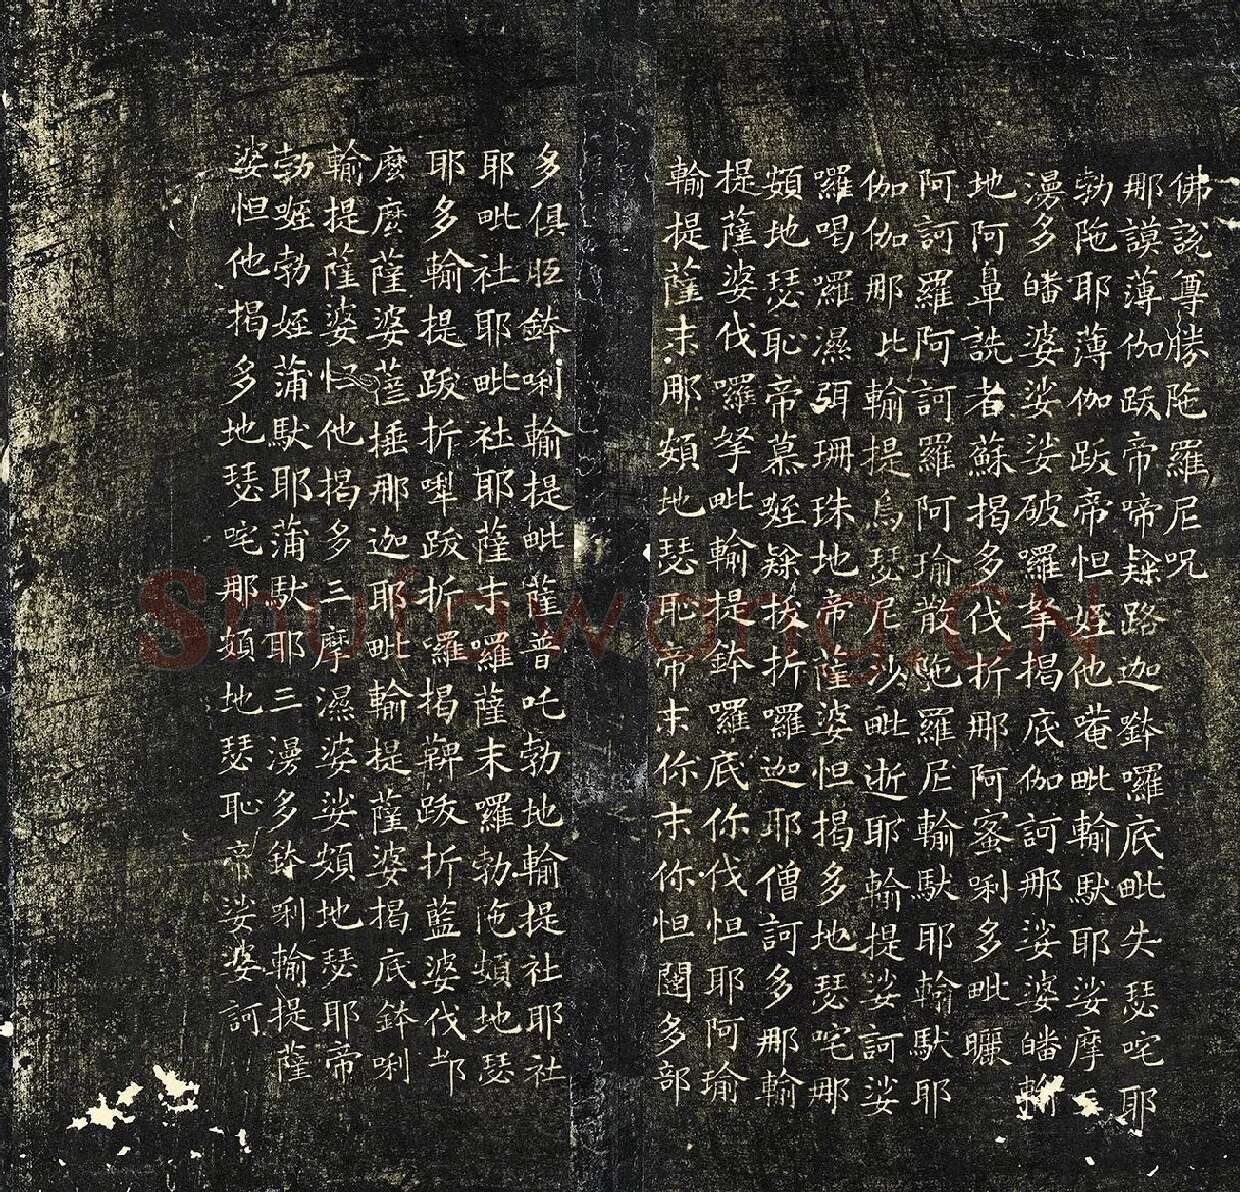 佛説尊勝陁羅尼呪
那謨薄伽跋帝啼隸路迦鉢囉底毗失瑟咤耶
勃陁耶薄伽跋帝怛姪他唵毗輸馱耶娑摩三
漫多皤婆娑娑破羅拏揭底伽訶那娑婆皤輸
地阿鼻詵者蘇揭多伐折那阿蜜唎多毗曬
阿訶羅阿訶羅阿瑜散陁羅尼輸馱耶輸馱耶
伽伽那比輸提烏瑟尼沙毗逝耶輸提娑訶娑
囉喝囉濕弭珊珠地帝薩婆怛揭多地瑟咤那
頞地瑟恥帝慕姪隸拔折囉迦耶僧訶多那輸
提薩婆伐囉拏毗輸提鉢囉底你伐怛耶阿瑜
輸提薩末那頞地瑟恥帝末你末你怛闥多部
多俱胝鉢唎輸提毗薩普吒勃地輸提社耶社
耶毗社耶毗社耶薩末囉薩末囉勃陁頞地瑟
耶多輸提跋折㘑跋折囉揭鞞跋折藍婆伐
麼麼薩婆薩埵那迦耶毗輸提薩婆揭底鉢唎
輸提薩婆怛他揭多三摩濕婆娑頞地瑟耶帝
勃姪勃姪蒲馱耶蒲馱耶三漫多鉢唎輸提薩
婆怛他揭多地瑟咤那頞地瑟恥帝娑婆訶
Shufawang.CN